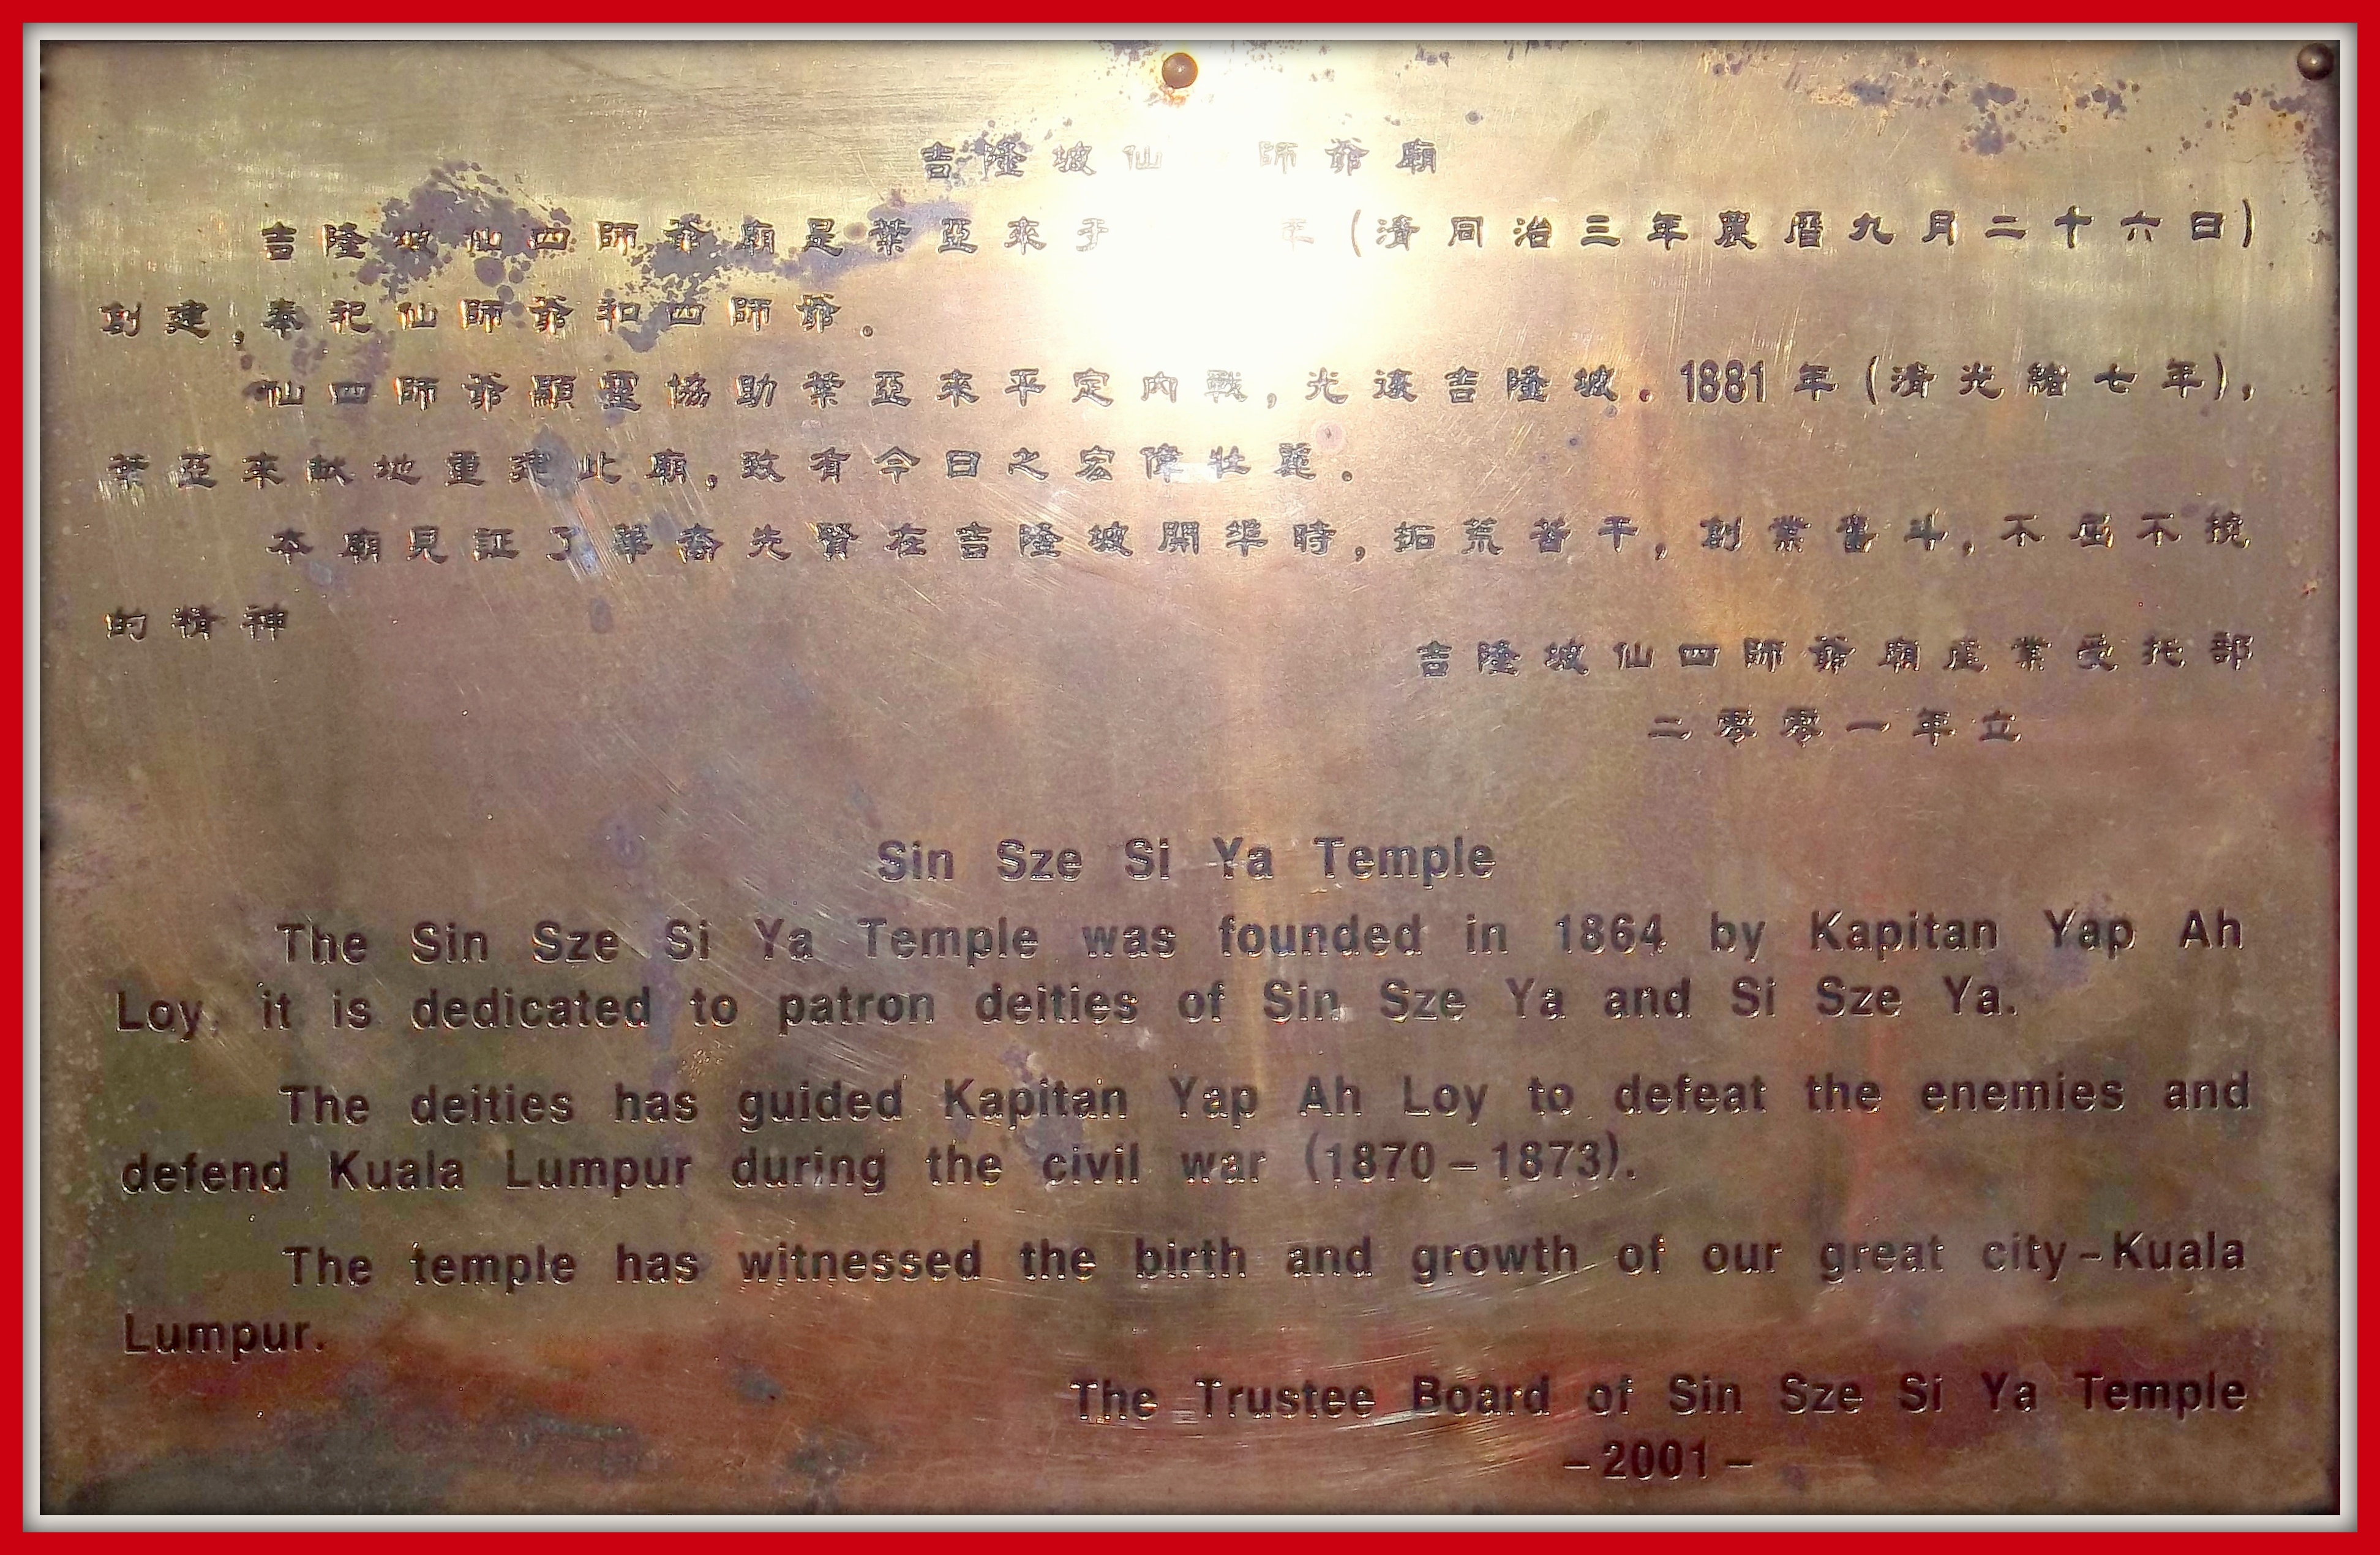 吉隆坡仙 師爺廟
吉隆坡仙四師爺廟是葉亞來于 年(清同治三年農曆九月二十六日)
創建,奉祀仙師爺和四師爺.
仙四師爺顯靈協助葉亞來平定內戰,光復吉隆坡.1881年(清光緒七年),
葉亞來献地重建此廟,致有今日之宏偉壯麗.
本廟見証了華裔先賢在吉隆坡開埠時,拓荒苦干,創業奮斗,不屈不撓
的精神
吉隆坡仙四師爺廟產業受托部
二零零一年立
Sin Sze Si Ya Temple
The Sin Sze Si Ya Temple was founded in 1864 by Kapitan Yap Ah
Loy, it is dedicated to patron deities of Sin Sze Ya and Si Sze Ya.
The deities has guided Kapitan Yap Ah Loy to defeat the enemies and
defend Kuala Lumpur during the civil war (1870–1873).
The temple has witnessed the birth and growth of our great city–Kuala
Lumpur.
The Trustee Board of Sin Sze Si Ya Temple
–2001–